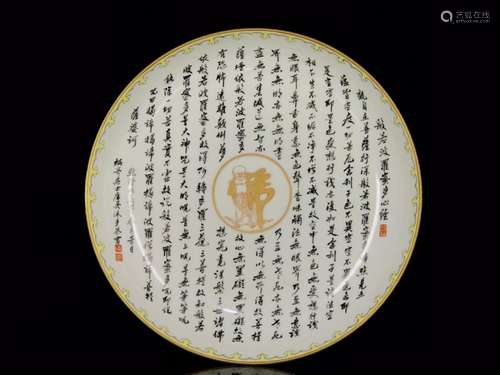 般若波羅蜜多心經
觀自在菩薩行深般若波羅蜜多時照見五
蘊皆空度一切苦厄舍利子色不異空空不異色色即
是空空即是色受想行識亦復如是舍利子是諸法空
相不生不滅不垢不淨不增不減是故空中無色無受想行識
無眼耳鼻舌身意無色聲香味觸法無眼界乃至無意識
界無無明亦無無明盡乃至無老死亦無老死
盡無苦集滅道無智亦無得以無所得故菩提
薩埵依般若波羅蜜多故心無罣礙無罣礙故無
有恐怖遠離顛倒夢想究竟涅槃三世諸佛
依般若波羅蜜多故得阿耨多羅三藐三菩提故知般若
波羅蜜多是大神咒是大明咒是無上咒是無等等咒
能除一切苦真實不虛故說般若波羅蜜多咒即說
咒曰揭諦揭諦波羅揭諦波羅僧揭諦菩提
薩婆訶
佛
艺狐在线